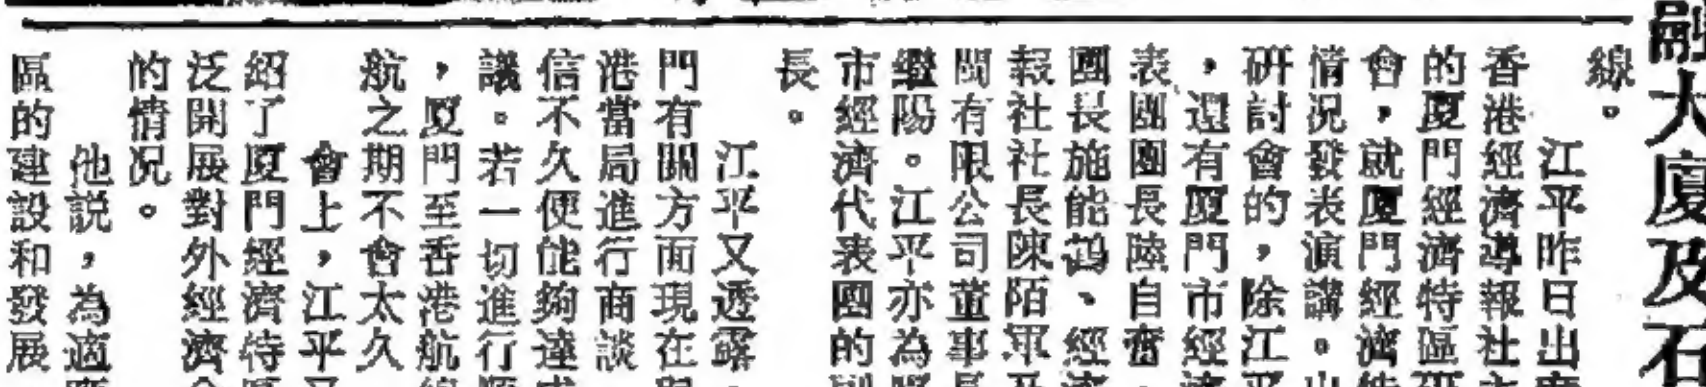 融大廈及石
線。
江平昨日出
香港經濟導報社
的廈門經濟特區研
會，就廈門經濟
情況發表演講。
研討會的，除江平
，還有廈門市經濟
表團團長陸自奮、
團長施能鶴、經濟
報社社長陳陌軍及
閩有限公司董事長
繼陽。江平亦為廈
市經濟代表團的副
長。
江平又透露，
門有關方面現在與
港當局進行商談
信不久便能夠達成
議。若一切進行順
，廈門至香港航線
航之期不會太久
會上，江平又
紹了廈門經濟特區
泛開展對外經濟合
的情況。
他說，為適應
區的建設和發展